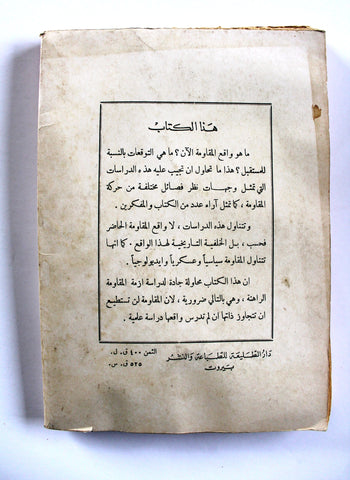 هذا الكتاب
ما هو واقع المقاومة الآن؟ ما هي التوقعات بالنسبة
للمستقبل؟ هذا ما تحاول ان تجيب عليه هذه الدراسات
التي تمثل وجهات نظر فصائل مختلفة من حركة
المقاومة ، كما تمثل آراء عدد من الكتاب والمفكرين .
وتتناول هذه الدراسات ، لا واقع المقاومة الحاضر
فحسب ، بل الخلفية التاريخية لهذا الواقع . كما انها
تتناول المقاومة سياسياً وعسكرياً وايديولوجياً .
ان هذا الكتاب محاولة جادة لدراسة ازمة المقاومة
الراهنة ، وهي بالتالي ضرورية ، لان المقاومة لن تستطيع
ان تتجاوز ذاتها ان لم تدرس واقعها دراسة علمية .
دار الطليعة للطباعة والنشر
بيروت
الثمن ٤٠٠ ق. ل.
٥٢٥ ق. س.